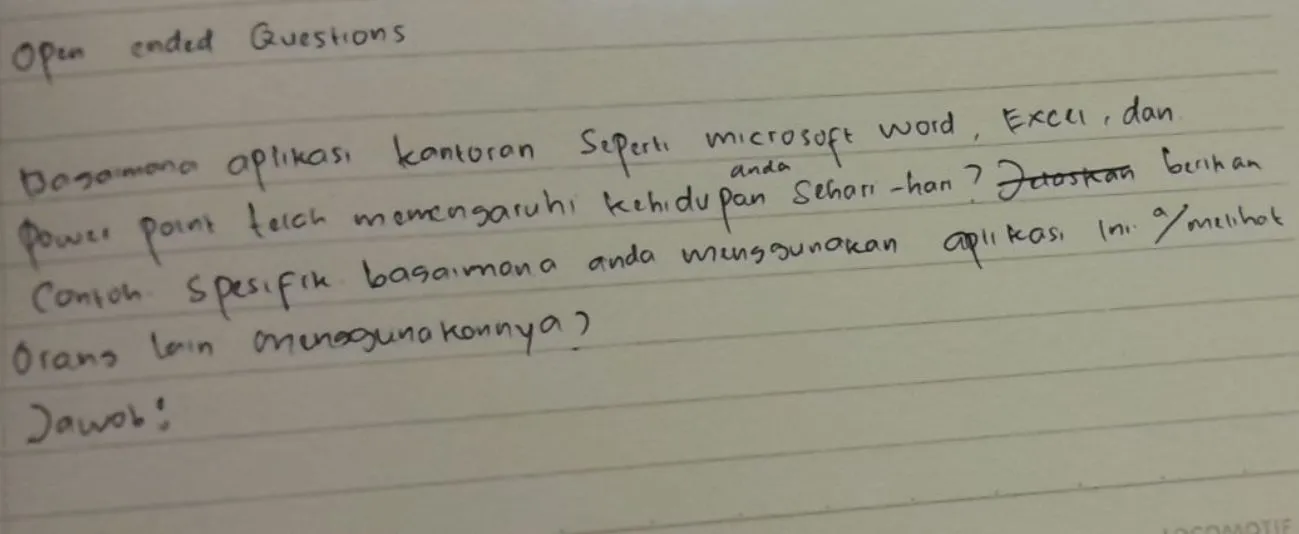 Open ended Questions
Bagaimana aplikasi kantoran seperti microsoft word, Excel, dan
Power point telah memengaruhi kehidupan anda sehari-hari? Jelaskan berikan
Contoh spesifik bagaimana anda menggunakan aplikasi ini a/ melihat
Orang lain menggunakannya?
Jawab:
LOCOMOTIF